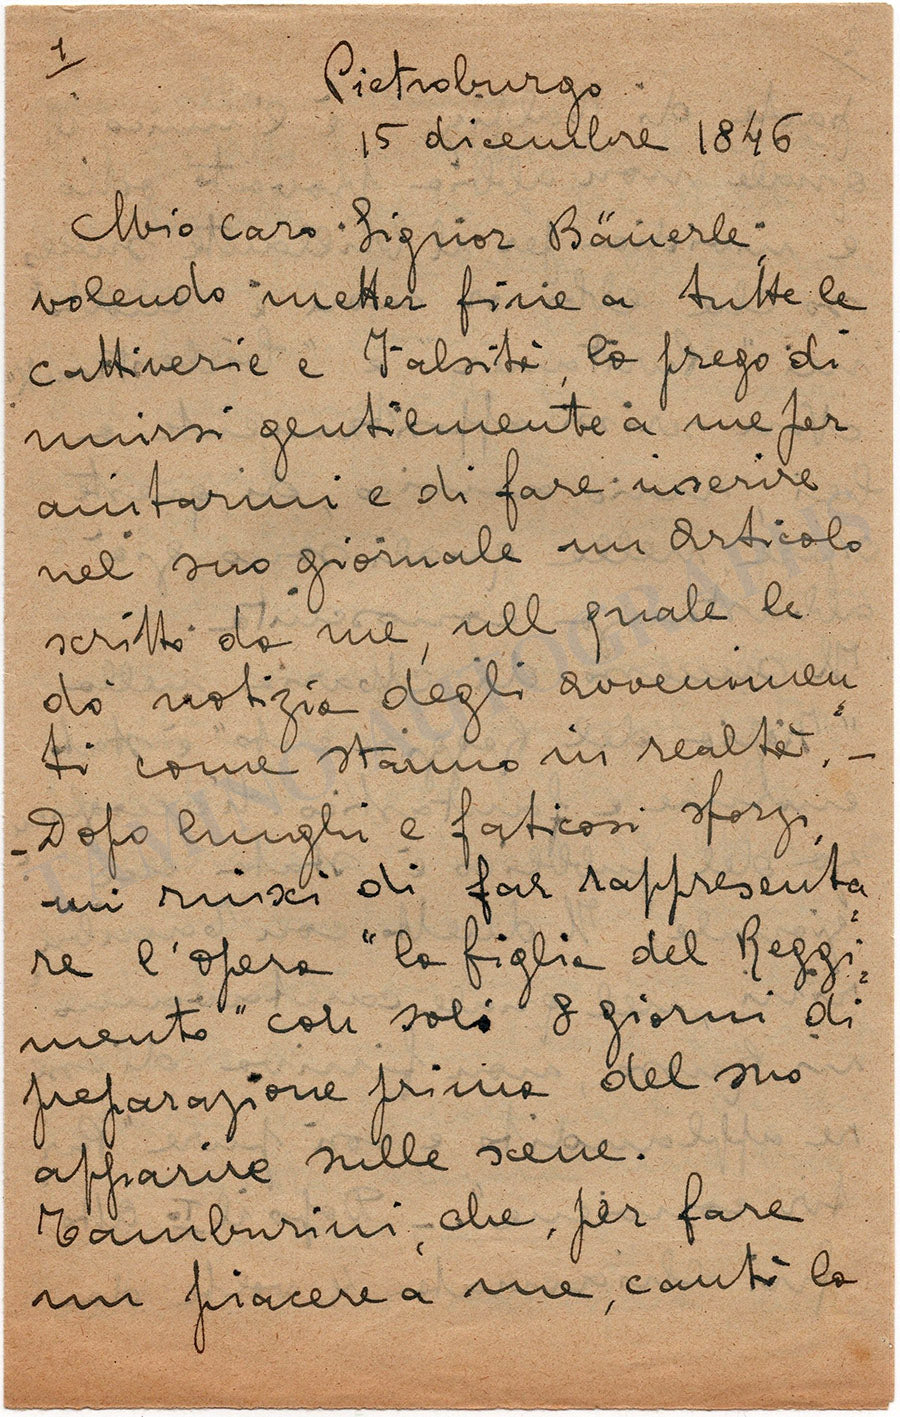 1
Pietroburgo
15 dicembre 1846
Mio caro Signor Bäuerle,
volendo metter fine a tutte le
cattiverie e falsità, la prego di
unirsi gentilmente a me per
aiutarmi e di fare inserire
nel suo giornale un articolo
scritto da me, nel quale le
dò notizia degli avvenimen
ti come stanno in realtà. —
- Dopo lunghi e faticosi sforzi,
mi riuscì di far rappresenta
re l'opera "la figlia del Reggi
mento" con soli 8 giorni di
preparazione prima del suo
apparire sulle scene.
Tamburini, che, per fare
un piacere a me, cantò la